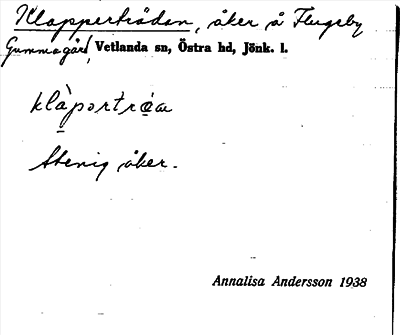 Klappertrådan, åker å Flugeby
Gummagård, Vetlanda sn, Östra hd, Jönk. l.
Stenig åker.
Annalisa Andersson 1938